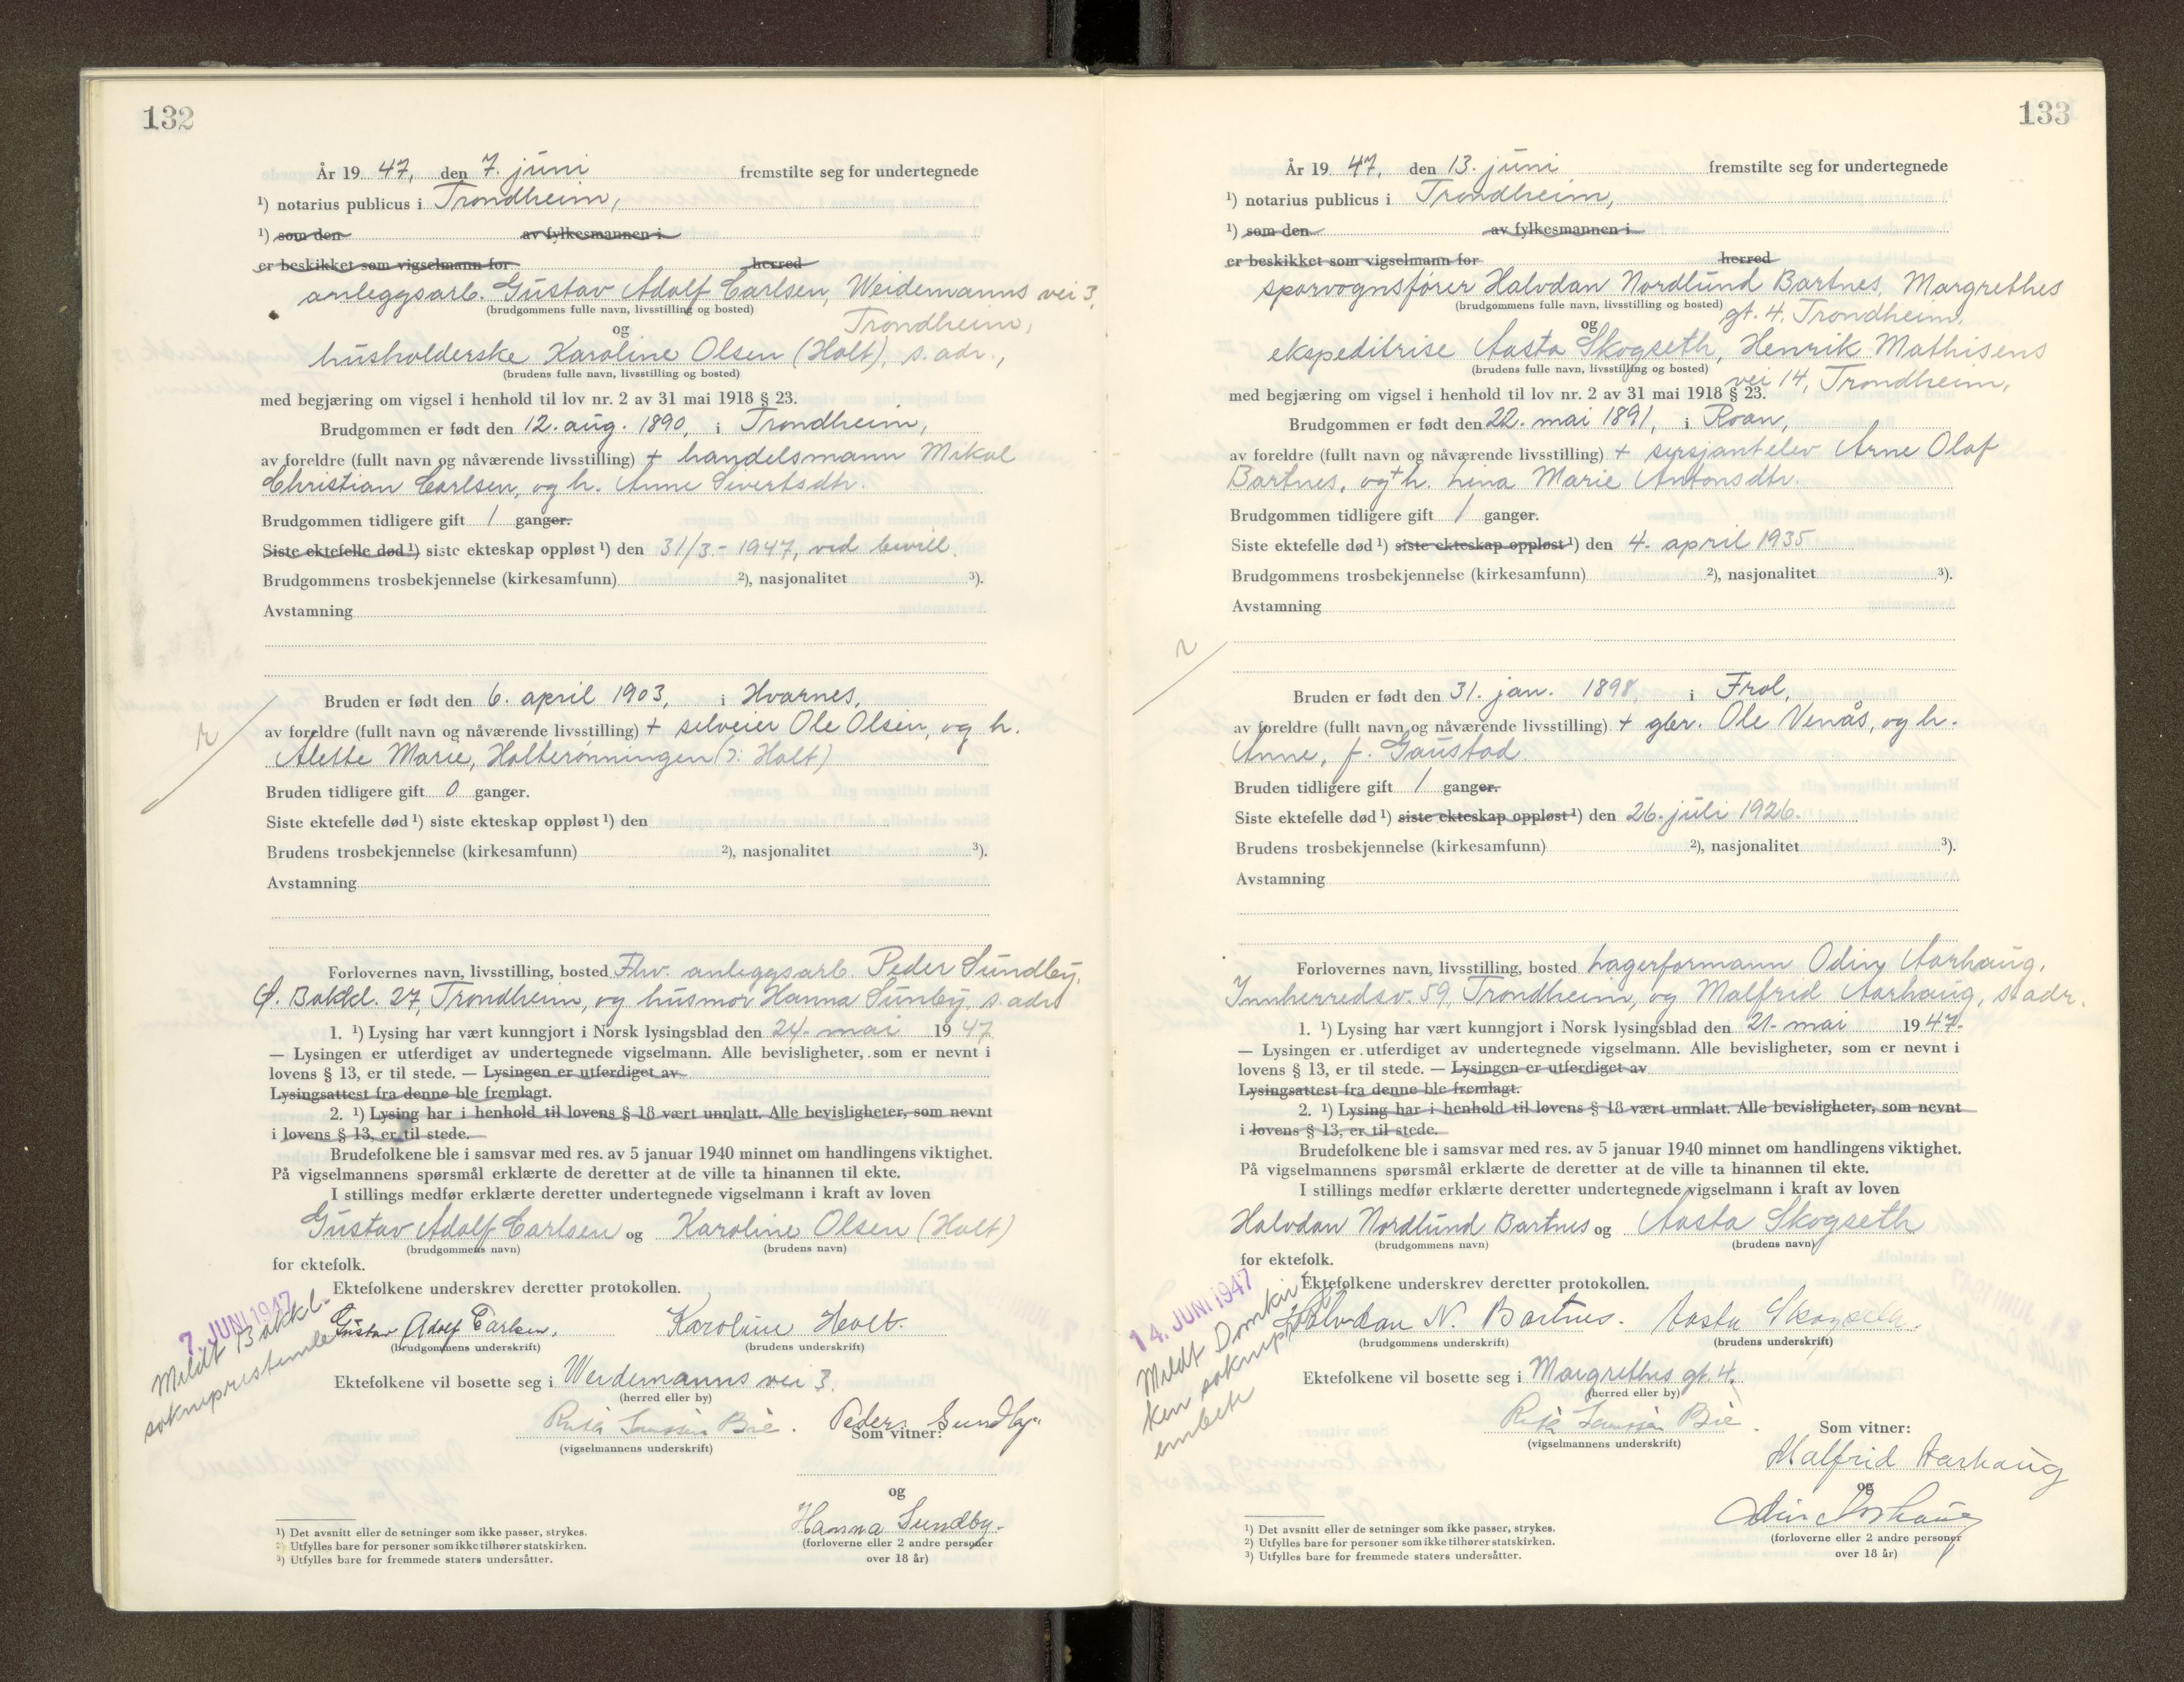 132
År 19 47, den 7. juni fremstilte seg for undertegnede
¹) notarius publicus i Trondheim,
¹) som den av fylkesmannen i
er beskikket som vigselmann for herred
anleggsarb. Gustav Adolf Carlsen, Weidemanns vei 3,
(brudgommens fulle navn, livsstilling og bosted)
Trondheim,
og
husholderske Karoline Olsen (Holt), s. adr.,
(brudens fulle navn, livsstilling og bosted)
med begjæring om vigsel i henhold til lov nr. 2 av 31 mai 1918 § 23.
Brudgommen er født den 12. aug. 1890, i Trondheim,
av foreldre (fullt navn og nåværende livsstilling) + handelsmann Mikal
Christian Carlsen, og h. Anne Sivertsdtr.
Brudgommen tidligere gift 1 ganger.
Siste ektefelle død ¹) siste ekteskap oppløst ¹) den 31/3.- 1947, ved bevill.
Brudgommens trosbekjennelse (kirkesamfunn) ²), nasjonalitet ³).
Avstamning
Bruden er født den 6. april 1903, i Hvarnes,
av foreldre (fullt navn og nåværende livsstilling) + selveier Ole Olsen, og h.
Alette Marie, Holterønningen (ɔ: Holt)
Bruden tidligere gift 0 ganger.
Siste ektefelle død ¹) siste ekteskap oppløst ¹) den
Brudens trosbekjennelse (kirkesamfunn) ²), nasjonalitet ³).
Avstamning
Forlovernes navn, livsstilling, bosted Fhv. anleggsarb. Peder Sundby,
Ø. Bakkl. 27, Trondheim, og husmor Hanna Sunby, s. adr.
1. ¹) Lysing har vært kunngjort i Norsk lysingsblad den 24. mai 19 47
— Lysingen er utferdiget av undertegnede vigselmann. Alle bevisligheter, som er nevnt i
lovens § 13, er til stede. — Lysingen er utferdiget av
Lysingsattest fra denne ble fremlagt.
2. ¹) Lysing har i henhold til lovens § 18 vært unnlatt. Alle bevisligheter, som nevnt
i lovens § 13, er til stede.
Brudefolkene ble i samsvar med res. av 5 januar 1940 minnet om handlingens viktighet.
På vigselmannens spørsmål erklærte de deretter at de ville ta hinannen til ekte.
I stillings medfør erklærte deretter undertegnede vigselmann i kraft av loven
Gustav Adolf Carlsen og Karoline Olsen (Holt)
(brudgommens navn) (brudens navn)
for ektefolk.
Ektefolkene underskrev deretter protokollen.
7. JUNI 1947
Meldt Bakkl.
sokneprestembede
Gustav Adolf Carlsen. Karoline Holt.
(brudgommens underskrift) (brudens underskrift)
Ektefolkene vil bosette seg i Weidemanns vei 3.
(herred eller by)
Bie. Peder Sundby
Som vitner:
(vigselmannens underskrift)
og
Hanna Sundby.
(forloverne eller 2 andre personer
over 18 år)
¹) Det avsnitt eller de setninger som ikke passer, strykes.
²) Utfylles bare for personer som ikke tilhører statskirken.
³) Utfylles bare for fremmede staters undersåtter.
133
År 19 47, den 13. juni fremstilte seg for undertegnede
¹) notarius publicus i Trondheim,
¹) som den av fylkesmannen i
er beskikket som vigselmann for herred
sporvognsfører Halvdan Nordlund Bartnes, Margrethes
(brudgommens fulle navn, livsstilling og bosted)
gt. 4, Trondheim,
og
ekspeditrise Aasta Skogseth, Henrik Mathisens
(brudens fulle navn, livsstilling og bosted)
vei 14, Trondheim,
med begjæring om vigsel i henhold til lov nr. 2 av 31 mai 1918 § 23.
Brudgommen er født den 22. mai 1891, i Roan,
av foreldre (fullt navn og nåværende livsstilling) + sersjantelev Arne Olaf
Bartnes, og + h. Lina Marie Antonsdtr.
Brudgommen tidligere gift 1 ganger.
Siste ektefelle død ¹) siste ekteskap oppløst ¹) den 4. april 1935
Brudgommens trosbekjennelse (kirkesamfunn) ²), nasjonalitet ³).
Avstamning
Bruden er født den 31. jan. 1898, i Frol,
av foreldre (fullt navn og nåværende livsstilling) + gbr. Ole Venås, og h.
Anne, f. Gaustad
Bruden tidligere gift 1 ganger.
Siste ektefelle død ¹) siste ekteskap oppløst ¹) den 26. juli 1926.
Brudens trosbekjennelse (kirkesamfunn) ²), nasjonalitet ³).
Avstamning
Forlovernes navn, livsstilling, bosted Lagerformann Odin Aarhaug,
Innherredsv. 59, Trondheim, og Malfrid Aarhaug, s. adr.
1. ¹) Lysing har vært kunngjort i Norsk lysingsblad den 21. mai 19 47.
— Lysingen er utferdiget av undertegnede vigselmann. Alle bevisligheter, som er nevnt i
lovens § 13, er til stede. — Lysingen er utferdiget av
Lysingsattest fra denne ble fremlagt.
2. ¹) Lysing har i henhold til lovens § 18 vært unnlatt. Alle bevisligheter, som nevnt
i lovens § 13, er til stede.
Brudefolkene ble i samsvar med res. av 5 januar 1940 minnet om handlingens viktighet.
På vigselmannens spørsmål erklærte de deretter at de ville ta hinannen til ekte.
I stillings medfør erklærte deretter undertegnede vigselmann i kraft av loven
Halvdan Nordlund Bartnes og Aasta Skogseth
(brudgommens navn) (brudens navn)
for ektefolk.
Ektefolkene underskrev deretter protokollen.
14. JUNI 1947
Meldt Domkir
ken soknepr.
embete
Halvdan N. Bartnes. Aasta Skogseth.
(brudgommens underskrift) (brudens underskrift)
Ektefolkene vil bosette seg i Margrethes gt. 4.
(herred eller by)
Bie
Som vitner:
(vigselmannens underskrift)
Malfrid Aarhaug
og
Odin Aarhaug
(forloverne eller 2 andre personer
over 18 år)
¹) Det avsnitt eller de setninger som ikke passer, strykes.
²) Utfylles bare for personer som ikke tilhører statskirken.
³) Utfylles bare for fremmede staters undersåtter.